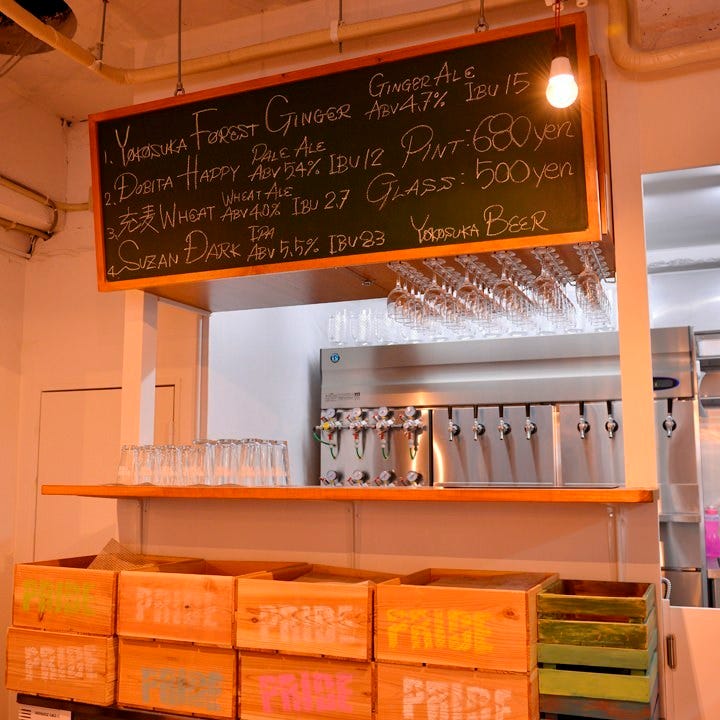 1. YOKOSUKA FOREST GINGER GINGER ALE ABV 4.7% IBU 15
2. DOBITA HAPPY PALE ALE ABV 5.4% IBU 12 PINT: 680 yen
3. 充麦 WHEAT WHEAT ALE ABV 4.0% IBU 2.7 GLASS: 500 yen
4. SUZAN DARK IPA ABV 5.5% IBU 23 YOKOSUKA BEER
PRIDE PRIDE PRIDE PRIDE
PRIDE PRIDE PRIDE PRIDE